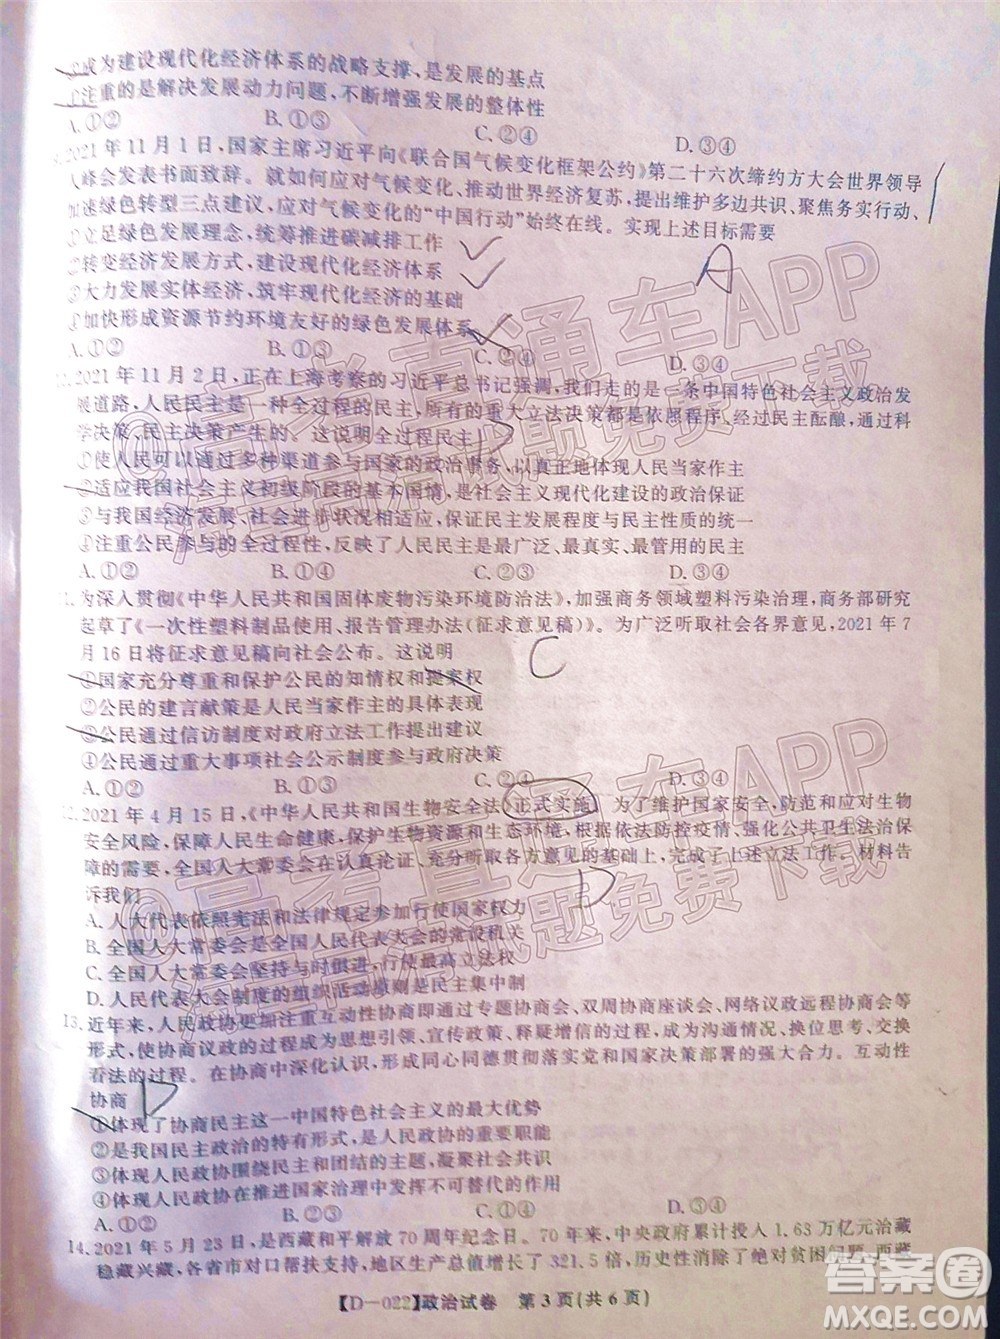 成为建设现代化经济体系的战略支撑，是发展的基点
注重的是解决发展动力问题，不断增强发展的整体性
A.①② B.①③ C.②④ D.③④
2021年11月1日，国家主席习近平向《联合国气候变化框架公约》第二十六次缔约方大会世界领导
人峰会发表书面致辞。就如何应对气候变化、推动世界经济复苏，提出维护多边共识、聚焦务实行动、
加速绿色转型三点建议，应对气候变化的“中国行动”始终在线。实现上述目标需要
①立足绿色发展理念，统筹推进碳减排工作
②转变经济发展方式，建设现代化经济体系
③大力发展实体经济，筑牢现代化经济的基础
④加快形成资源节约环境友好的绿色发展体系
A.①② B.①③ C.②④ D.③④
A
2021年11月2日，正在上海考察的习近平总书记强调，我们走的是一条中国特色社会主义政治发
展道路，人民民主是一种全过程的民主，所有的重大立法决策都是依照程序、经过民主酝酿，通过科
学决策、民主决策产生的。这说明全过程民主
①使人民可以通过多种渠道参与国家的政治事务，以真正地体现人民当家作主
②适应我国社会主义初级阶段的基本国情，是社会主义现代化建设的政治保证
③与我国经济发展、社会进步状况相适应，保证民主发展程度与民主性质的统一
④注重公民参与的全过程性，反映了人民民主是最广泛、最真实、最管用的民主
A.①② B.①③ C.②④ D.③④
为深入贯彻《中华人民共和国固体废物污染环境防治法》，加强商务领域塑料污染治理，商务部研究
起草了《一次性塑料制品使用、报告管理办法(征求意见稿)》。为广泛听取社会各界意见，2021年7
月16日将征求意见稿向社会公布。这说明
C
①国家充分尊重和保护公民的知情权和提案权
②公民的建言献策是人民当家作主的具体表现
③公民通过信访制度对政府立法工作提出建议
④公民通过重大事项社会公示制度参与政府决策
A.①② B.①③ C.②④ D.③④
12.2021年4月15日，《中华人民共和国生物安全法》正式实施。为了维护国家安全，防范和应对生物
安全风险，保障人民生命健康，保护生物资源和生态环境，根据依法防控疫情、强化公共卫生法治保
障的需要，全国人大常委会在认真论证、充分听取各方意见的基础上，完成了上述立法工作。材料告
诉我们
D
A.人大代表依照宪法和法律规定参加行使国家权力
B.全国人大常委会是全国人民代表大会的常设机关
C.全国人大常委会坚持与时俱进，行使最高立法权
D.人民代表大会制度的组织活动原则是民主集中制
13.近年来，人民政协更加注重互动性协商即通过专题协商会、双周协商座谈会、网络议政远程协商会等
形式，使协商议政的过程成为思想引领、宣传政策、释疑增信的过程，成为沟通情况、换位思考、交换
看法的过程。在协商中深化认识，形成同心同德贯彻落实党和国家决策部署的强大合力。互动性
协商
D
①体现了协商民主这一中国特色社会主义的最大优势
②是我国民主政治的特有形式，是人民政协的重要职能
③体现人民政协围绕民主和团结的主题，凝聚社会共识
④体现人民政协在推进国家治理中发挥不可替代的作用
A.①② B.②③ C.①④ D.③④
14.2021年5月23日，是西藏和平解放70周年纪念日。70年来，中央政府累计投入1.63万亿元治藏
稳藏兴藏，各省市对口帮扶支持，地区生产总值增长了321.5倍，历史性消除了绝对贫困问题，西藏
【D－022】政治试卷 第3页(共6页)
答案圈
MXQE.COM